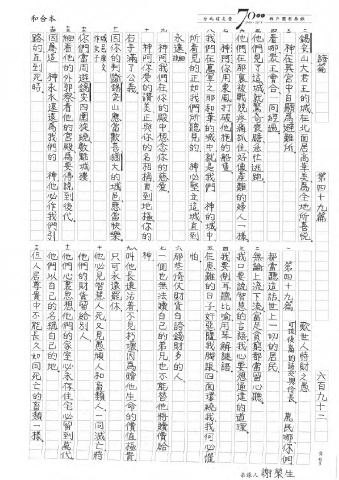 和合本
詩篇　第四十九篇　六百九十二
錫安山大君王的城在北面居高華美為全地所喜悅
神在其宮中自顯為避難所
看哪眾王會合一同經過
他們見了這城就驚奇喪膽急忙逃跑
他們在那裏被戰兢疼痛抓住好像產難的婦人一樣
神啊你用東風打破他施的船隻
我們在萬軍之耶和華的城中就是我們　神的城中
所看見的正如我們所聽見的　神必堅立這城直到
永遠
神阿我們在你的殿中想念你的慈愛
神阿你受的讚美正與你的名相稱直到地極你的
右手滿了公義
因你的判斷錫安山應當歡喜猶大的城邑應當快樂
你們當周遊錫安四圍旋繞數點城樓
細看他的外郭察看他的宮殿為要傳說到後代
因為這　神永永遠遠為我們的　神他必作我們引
路的直到死時
第四十九篇　歎世人恃財之愚
可拉後裔的詩交與伶長　萬民哪你們
都當聽這話世上一切的居民
無論上流下流富足貧窮都當留心聽
我口要說智慧的言語我心要想通達的道理
我要側耳聽比喻用琴解謎語
在患難的日子奸惡隨我腳跟四面環繞我我何必懼
怕
那些倚仗財貨自誇錢財多的人
一個也無法贖自己的弟兄也不能替他將贖價給
神
叫他長遠活著不見朽壞因為贖他生命的價值極貴
只可永遠罷休
他必見智慧人死又見愚頑人和畜類人一同滅亡將
他們的財貨留給別人
他們心裏思想他們的家室必永存住宅必留到萬代
他們以自己的名稱自己的地
但人居尊貴中不能長久如同死亡的畜類一樣